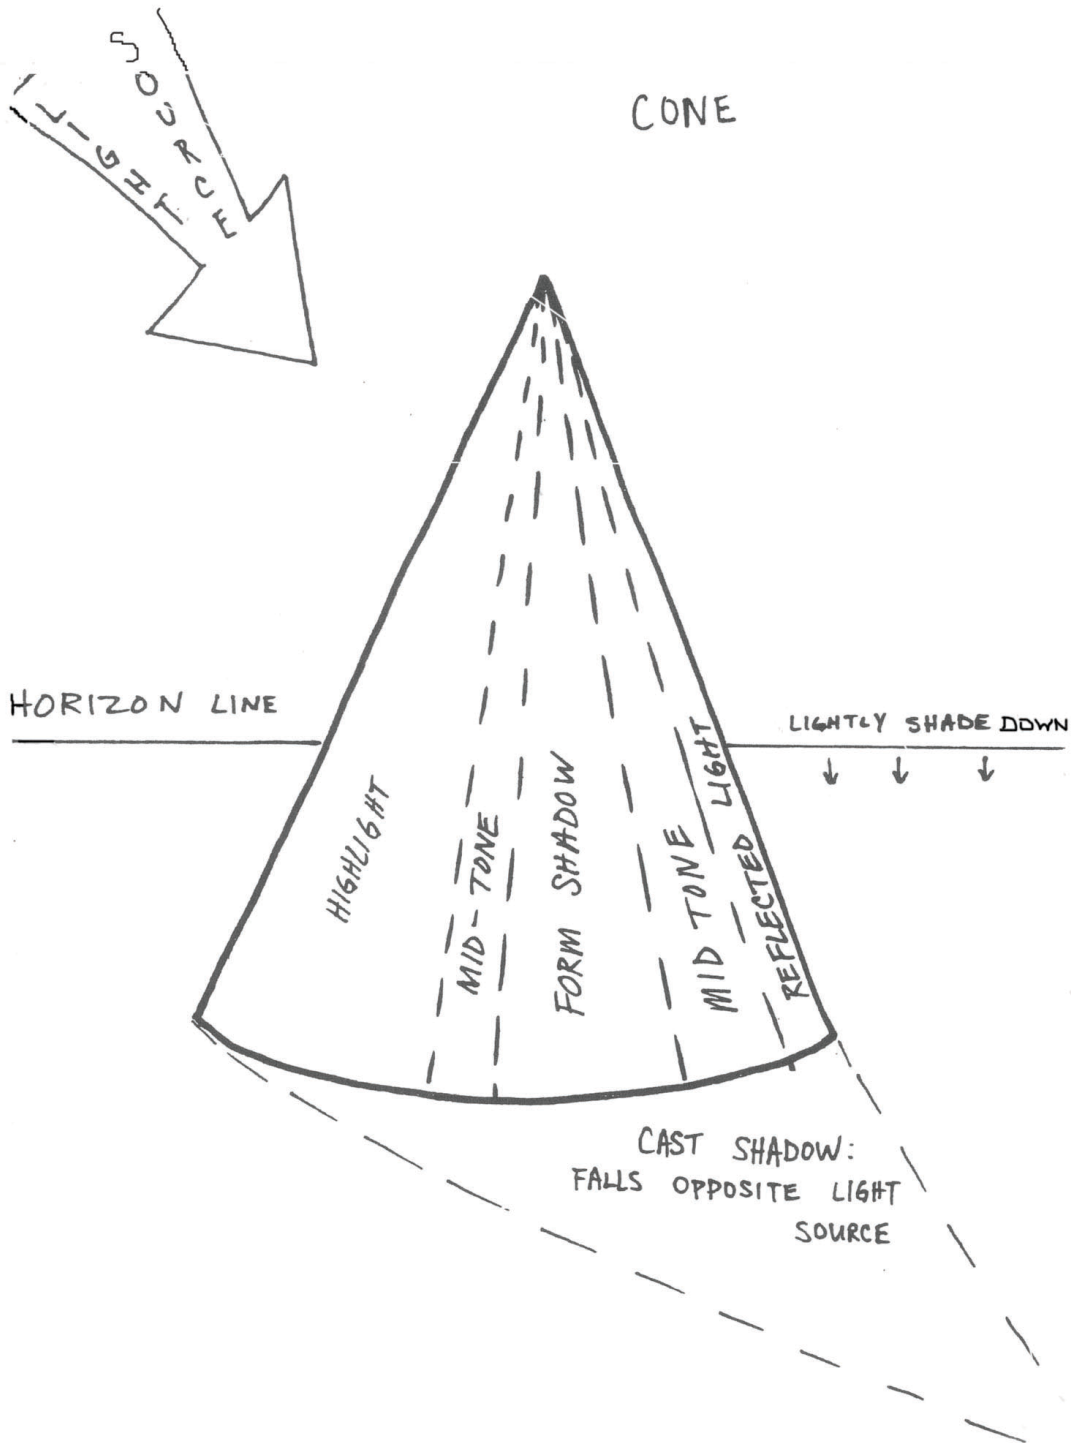 LIGHT
SOURCE
CONE
HORIZON LINE
LIGHTLY SHADE DOWN
HIGHLIGHT
MID-TONE
FORM SHADOW
MID TONE
REFLECTED LIGHT
CAST SHADOW:
FALLS OPPOSITE LIGHT
SOURCE